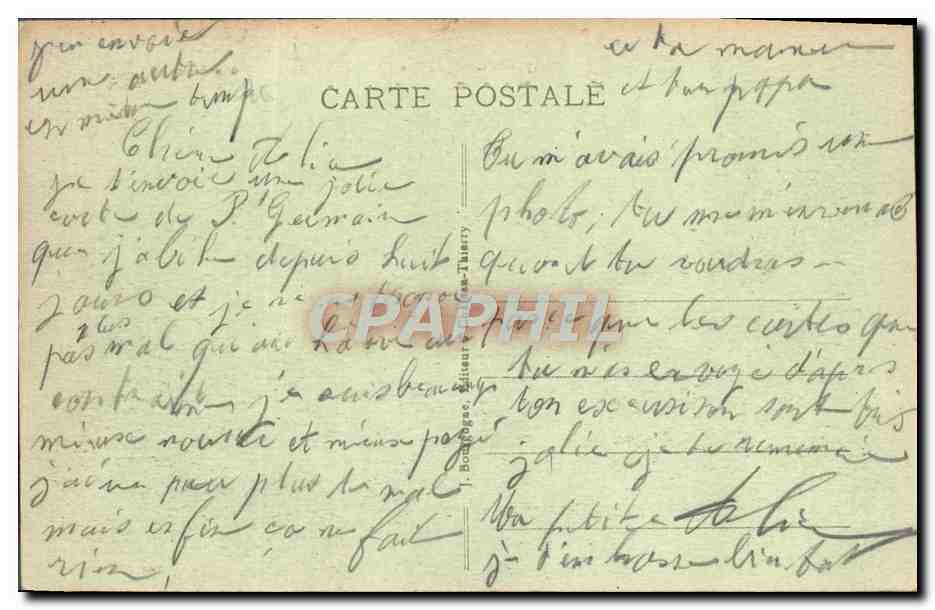 j'en envoie
une autre
en même temps
CARTE POSTALE
Chère
je t'envoie une jolie
carte de St Germain
que j'abite depuis huit
jours et je ne
pas plus mal qu'au Havre au
contraire je suis beaucoup
mieux nourie et mieux payé
j'ai un peur plus de mal
mais enfin ça ne fait
rien,
J. Bourgogne, Editeur à Jean-Thierry
CPAPHIL
et ta maman
et ton papa
Tu m'avais promis une
photo, tu me
quant tu voudras
parce que les cartes que
tu m'as envoyé d'après
ton excursion sont très
jolie je te remercie
Ta petite
je t'embrasse bien fort